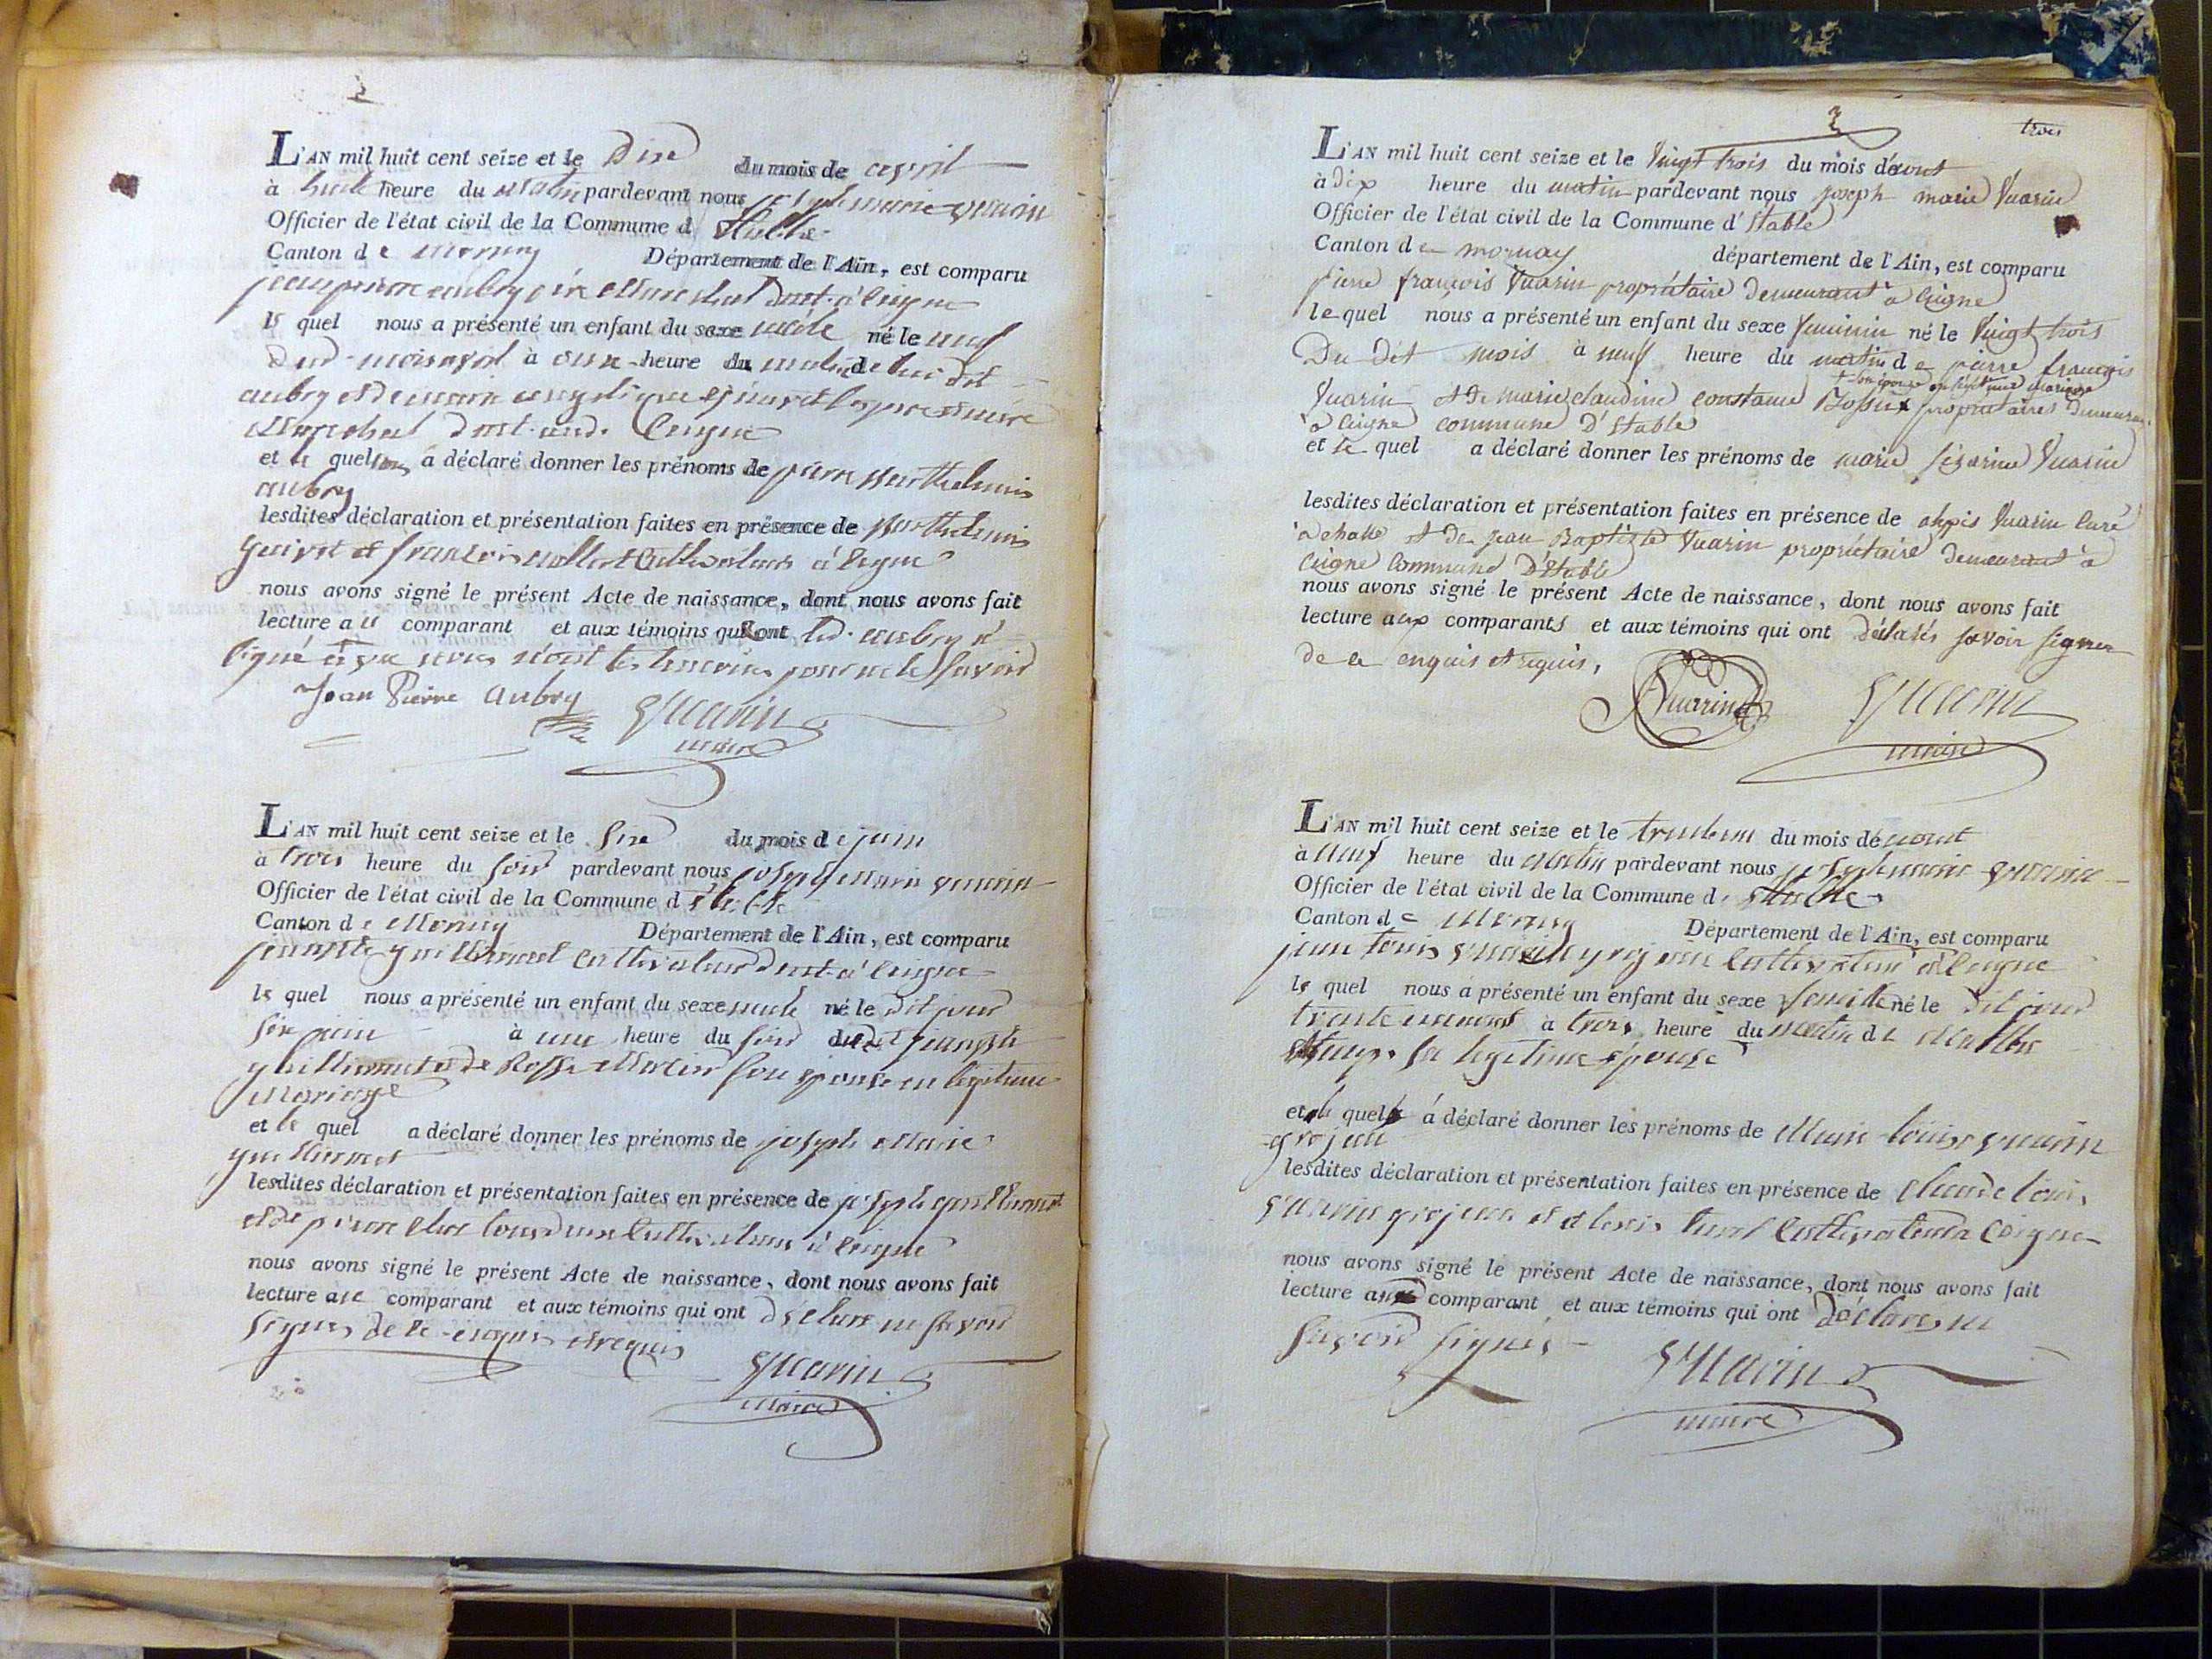 2
L'AN mil huit cent seize et le Dix du mois de avril
à huit heure du matin pardevant nous joseph marie vuarin
Officier de l'état civil de la Commune d'Etable
Canton de Mornay Département de l'Ain, est comparu
jean pierre aubry marechal dmt. à Ceigne
le quel nous a présenté un enfant du sexe mâle né le neuf
dud. mois avril à onze heure du matin de lui dit
aubry et de marie angelique
marechal dmt. aud. Ceigne
et le quel a déclaré donner les prénoms de pierre Barthelemis
aubry
lesdites déclaration et présentation faites en présence de Barthelemis
et françois Cultivateurs à Ceigne
nous avons signé le présent Acte de naissance, dont nous avons fait
lecture au comparant et aux témoins qui ont led. aubry a
signé avec nous non les temoins pour ne le savoir
Jean Pierre Aubry Vuarin
maire
L'AN mil huit cent seize et le six du mois de juin
à trois heure du soir pardevant nous joseph Marie vuarin
Officier de l'état civil de la Commune d'Etable
Canton de Mornay Département de l'Ain, est comparu
guillermet Cultivateur dmt. à Ceigne
le quel nous a présenté un enfant du sexe male né le dit jour
six juin à une heure du soir dudit
guillermet et de Rose son épouse en légitime
Mariage
et le quel a déclaré donner les prénoms de joseph Marie
guillermet
lesdites déclaration et présentation faites en présence de joseph guillermet
et de pierre Cultivateurs à Ceigne
nous avons signé le présent Acte de naissance, dont nous avons fait
lecture au comparant et aux témoins qui ont déclaré ne savoir
signer de ce enquis et requis
Vuarin
Maire
3 trois
L'AN mil huit cent seize et le Vingt trois du mois d'aout
à dix heure du matin pardevant nous joseph marie Vuarin
Officier de l'état civil de la Commune d'Etable
Canton de mornay département de l'Ain, est comparu
pierre françois Vuarin propriétaire demeurant à Ceigne
le quel nous a présenté un enfant du sexe feminin né le Vingt trois
Du dit mois à neuf heure du matin de pierre françois
+ son épouse en légitime mariage
Vuarin et de marie claudine constance Bossu + propriétaires demeurant
à Ceigne commune d'Etable
et le quel a déclaré donner les prénoms de marie Césarine Vuarin
lesdites déclaration et présentation faites en présence de alexis Vuarin curé
à challe et de jean Baptiste Vuarin propriétaire demeurant à
Ceigne Commune D'Etable
nous avons signé le présent Acte de naissance, dont nous avons fait
lecture aux comparants et aux témoins qui ont déclarés savoir signer
de ce enquis et requis,
Vuarin Vuarin
maire
L'AN mil huit cent seize et le trente un du mois de aout
à neuf heure du Matin pardevant nous joseph marie vuarin
Officier de l'état civil de la Commune d'Etable
Canton de Mornay Département de l'Ain, est comparu
jean louis vuarin grojean Cultivateur à Ceigne
le quel nous a présenté un enfant du sexe femelle né le dit jour
trente un aout à trois heure du matin de
sa legitime épouse
et le quel a déclaré donner les prénoms de Marie louise vuarin
grojean
lesdites déclaration et présentation faites en présence de claude louis
vuarin grojean et alexis Cultivateur à Ceigne
nous avons signé le présent Acte de naissance, dont nous avons fait
lecture au comparant et aux témoins qui ont déclaré ne
savoir signer
Vuarin
maire